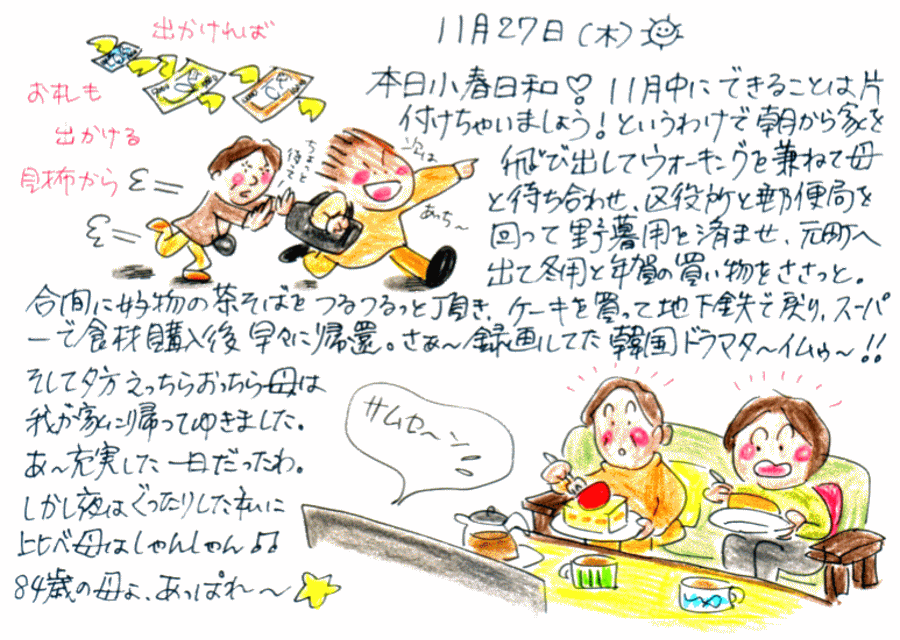 11月27日(木)
出かければ
お札も
出かける
財布から
ちょっと
待って
次は
あっち〜
本日小春日和♡ 11月中にできることは片
付けちゃいましょう!というわけで朝から家を
飛び出してウォーキングを兼ねて母
と待ち合わせ、区役所と郵便局を
回って野暮用を済ませ、元町へ
出て冬用と年賀の買い物をささっと。
合間に好物の茶そばをつるつるっと頂き、ケーキを買って地下鉄で戻り、スーパ
ーで食材購入後早々に帰還。さぁ〜録画してた韓国ドラマタ〜イムゥ〜!!
そして夕方えっちらおっちら母は
我が家に帰ってゆきました。
あ〜充実した一日だったわ。
しかし夜はぐったりした私に
比べ母はしゃんしゃん♫♫
84歳の母よ、あっぱれ〜
サムセ〜ン